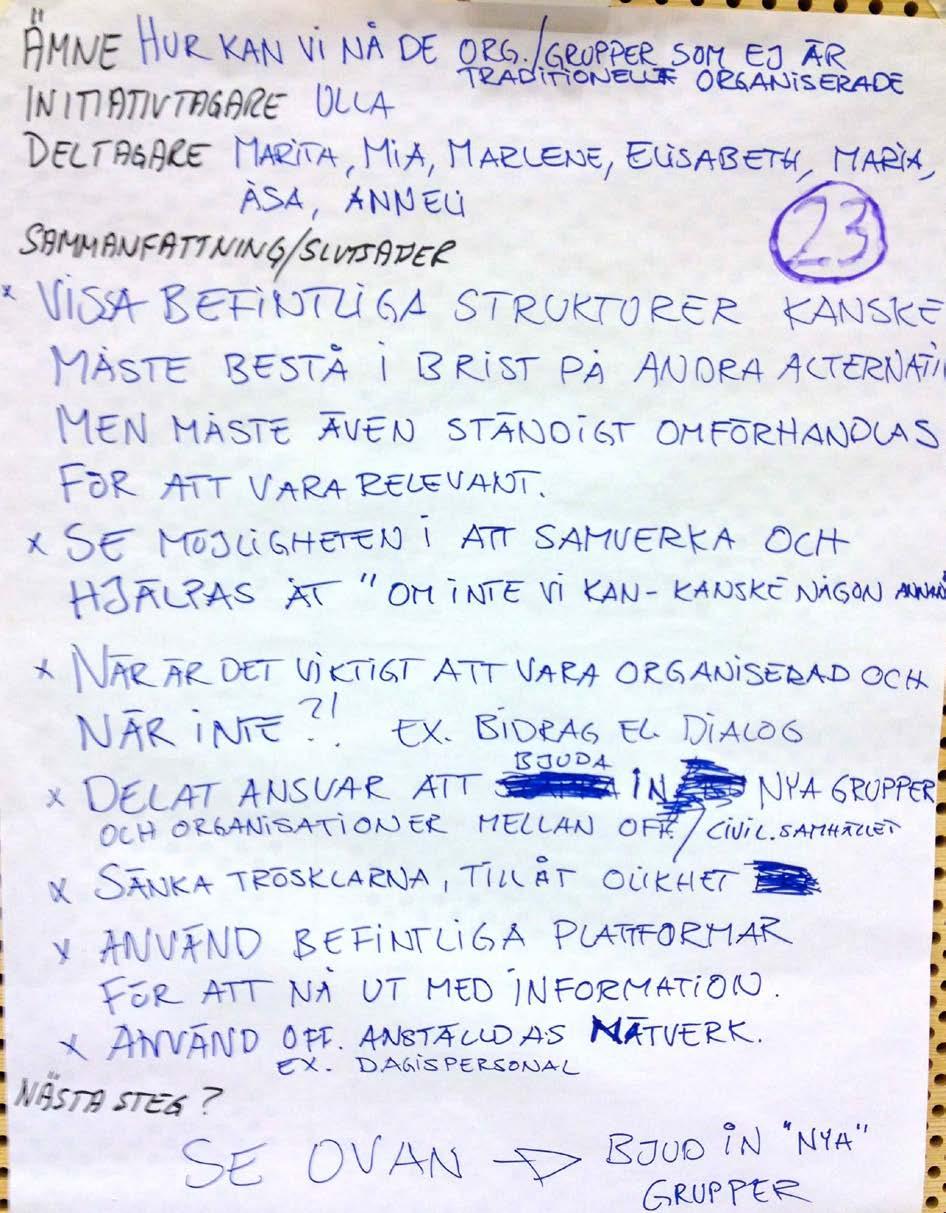 ÄMNE HUR KAN VI NÅ DE ORG./GRUPPER SOM EJ ÄR
TRADITIONELLT ORGANISERADE
INITIATIVTAGARE ULLA
DELTAGARE MARITA, MIA, MARLENE, ELISABETH, MARIA,
ÅSA, ANNELI
23
SAMMANFATTNING/SLUTSATSER
x VISSA BEFINTLIGA STRUKTURER KANSKE
MÅSTE BESTÅ I BRIST PÅ ANDRA ALTERNATIV
MEN MÅSTE ÄVEN STÄNDIGT OMFÖRHANDLAS
FÖR ATT VARA RELEVANT.
x SE MÖJLIGHETEN I ATT SAMVERKA OCH
HJÄLPAS ÅT "OM INTE VI KAN - KANSKE NÅGON ANNAN
x NÄR ÄR DET VIKTIGT ATT VARA ORGANISERAD OCH
NÄR INTE?! EX. BIDRAG EL DIALOG
x DELAT ANSVAR ATT BJUDA IN NYA GRUPPER
OCH ORGANISATIONER MELLAN OFF./CIVIL.SAMHÄLLET
x SÄNKA TRÖSKLARNA, TILLÅT OLIKHET
x ANVÄND BEFINTLIGA PLATTFORMAR
FÖR ATT NÅ UT MED INFORMATION.
x ANVÄND OFF. ANSTÄLLDAS NÄTVERK.
EX. DAGISPERSONAL
NÄSTA STEG?
SE OVAN → BJUD IN "NYA"
GRUPPER